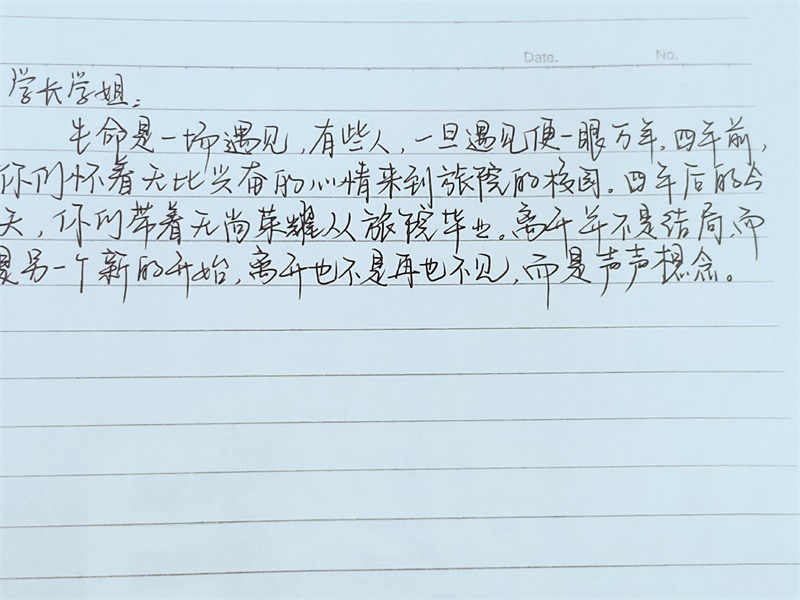 Date. No.
学长学姐:
生命是一场遇见,有些人,一旦遇见便一眼万年。四年前,
你们怀着无比兴奋的心情来到旅院的校园。四年后的今
天,你们带着无尚荣耀从旅院毕业。离开并不是结局,而
是另一个新的开始,离开也不是再也不见,而是声声想念。